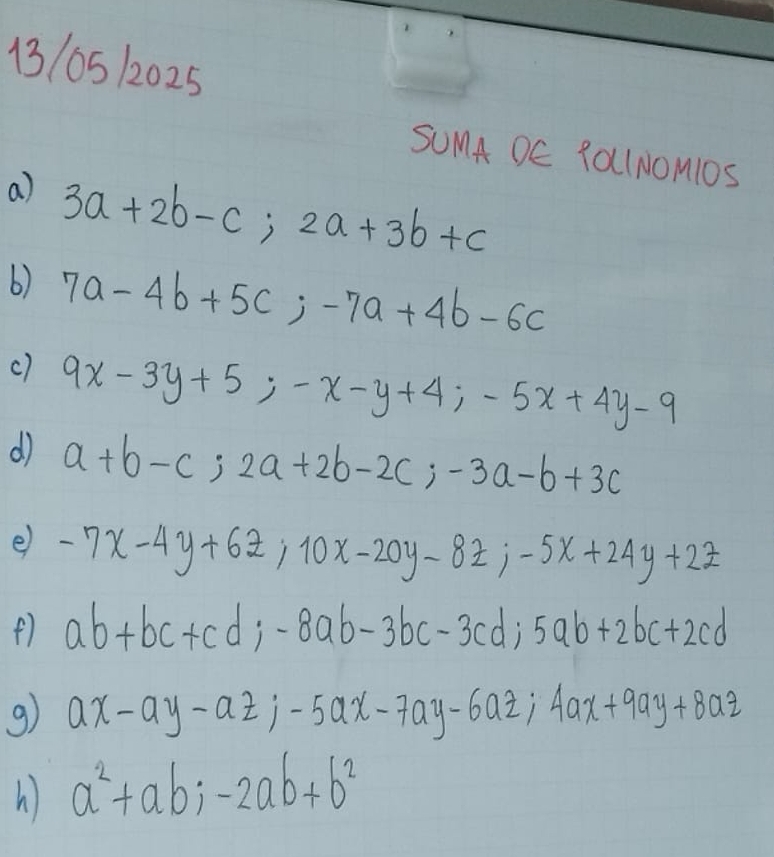 13/05/2025
SUMA DE POLINOMIOS
a) 3a+2b-c; 2a+3b+c
b) 7a-4b+5c; -7a+4b-6c
c) 9x-3y+5; -x-y+4; -5x+4y-9
d) a+b-c; 2a+2b-2c; -3a-b+3c
e) -7x-4y+6z; 10x-20y-8z; -5x+24y+2z
f) ab+bc+cd; -8ab-3bc-3cd; 5ab+2bc+2cd
g) ax-ay-az; -5ax-7ay-6az; 4ax+9ay+8az
h) a²+ab; -2ab+b²